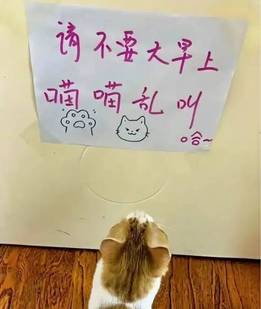 请不要大早上
喵喵乱叫
哈~